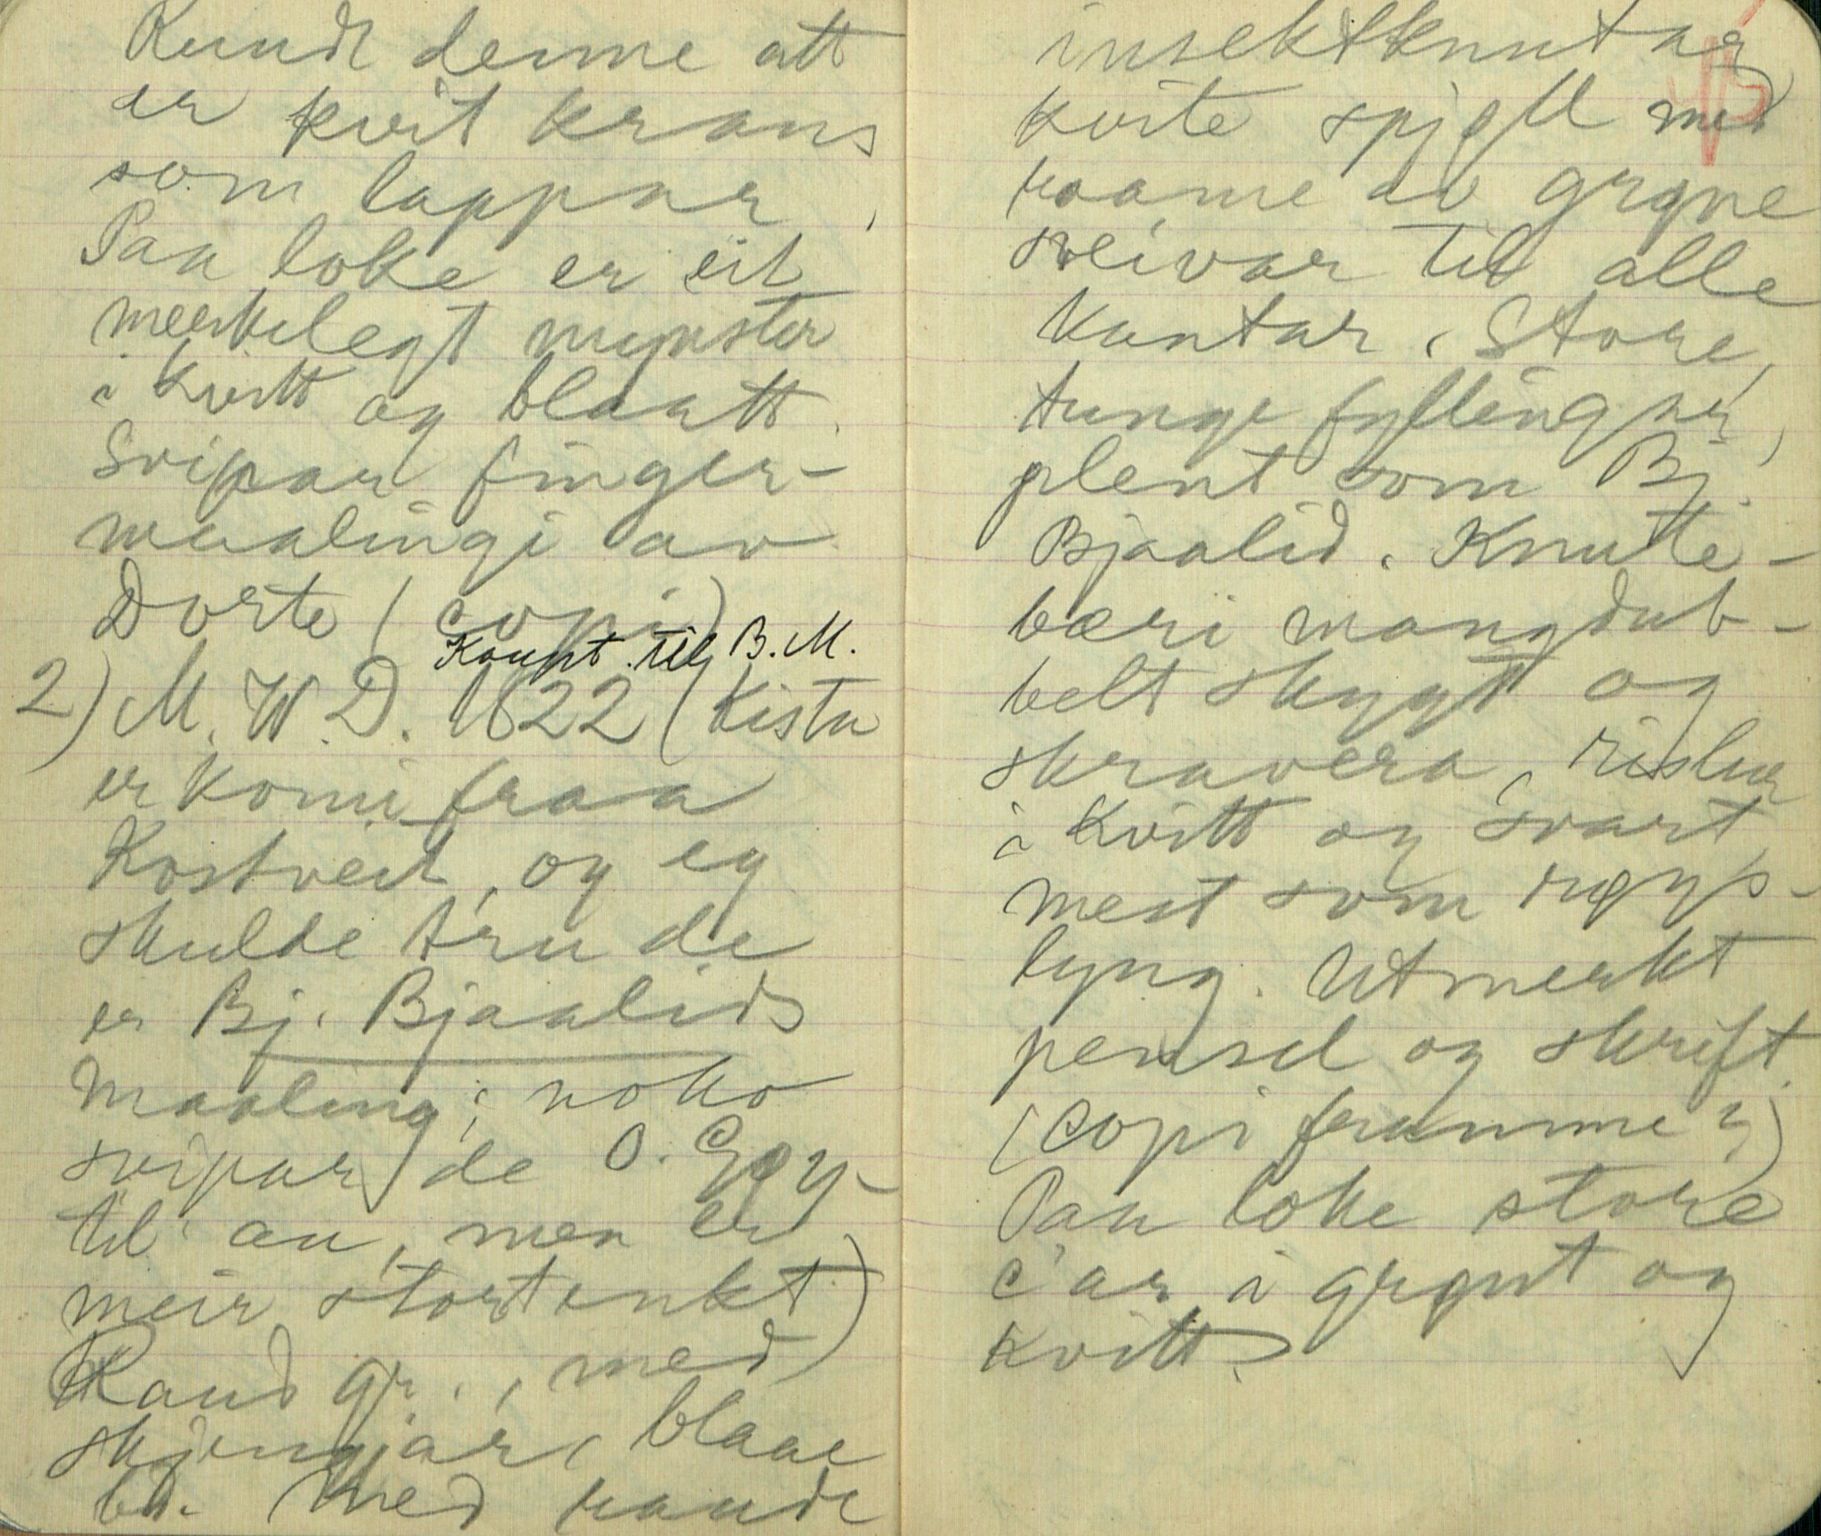 Rundt denne att
er kvit krans
som lappar,
Paa loke er eit
merkelegt mynster
i kvitt og blaatt.
Svipar finger-
maalingi av
Dorte (copi)
Kaupt til B.M.
2) M. W. D. 1822 (Kista
er komi fraa
Kostveit, og eg
skulde tru de
er Bj. Bjaalids
maaling; noko
svipar de O. Gøy-
til an, men er
meir stortenkt)
Raud gr., med
skjengjar, blaae
bd. med raude
insektknutar
kvite spjøll med
raame av grøne
sveivar til alle
kantar. Store,
tunge fyllingar,
plent som Bj.
Bjaalid. Knutte-
bæri mangdub-
belt skygt og
skravera, rislur
i kvitt og svart,
mest som røys-
lyng. Utmerkt
pensel og skrift.
(Copi framme i)
Paa loke store
c'ar i grønt og
kvitt.